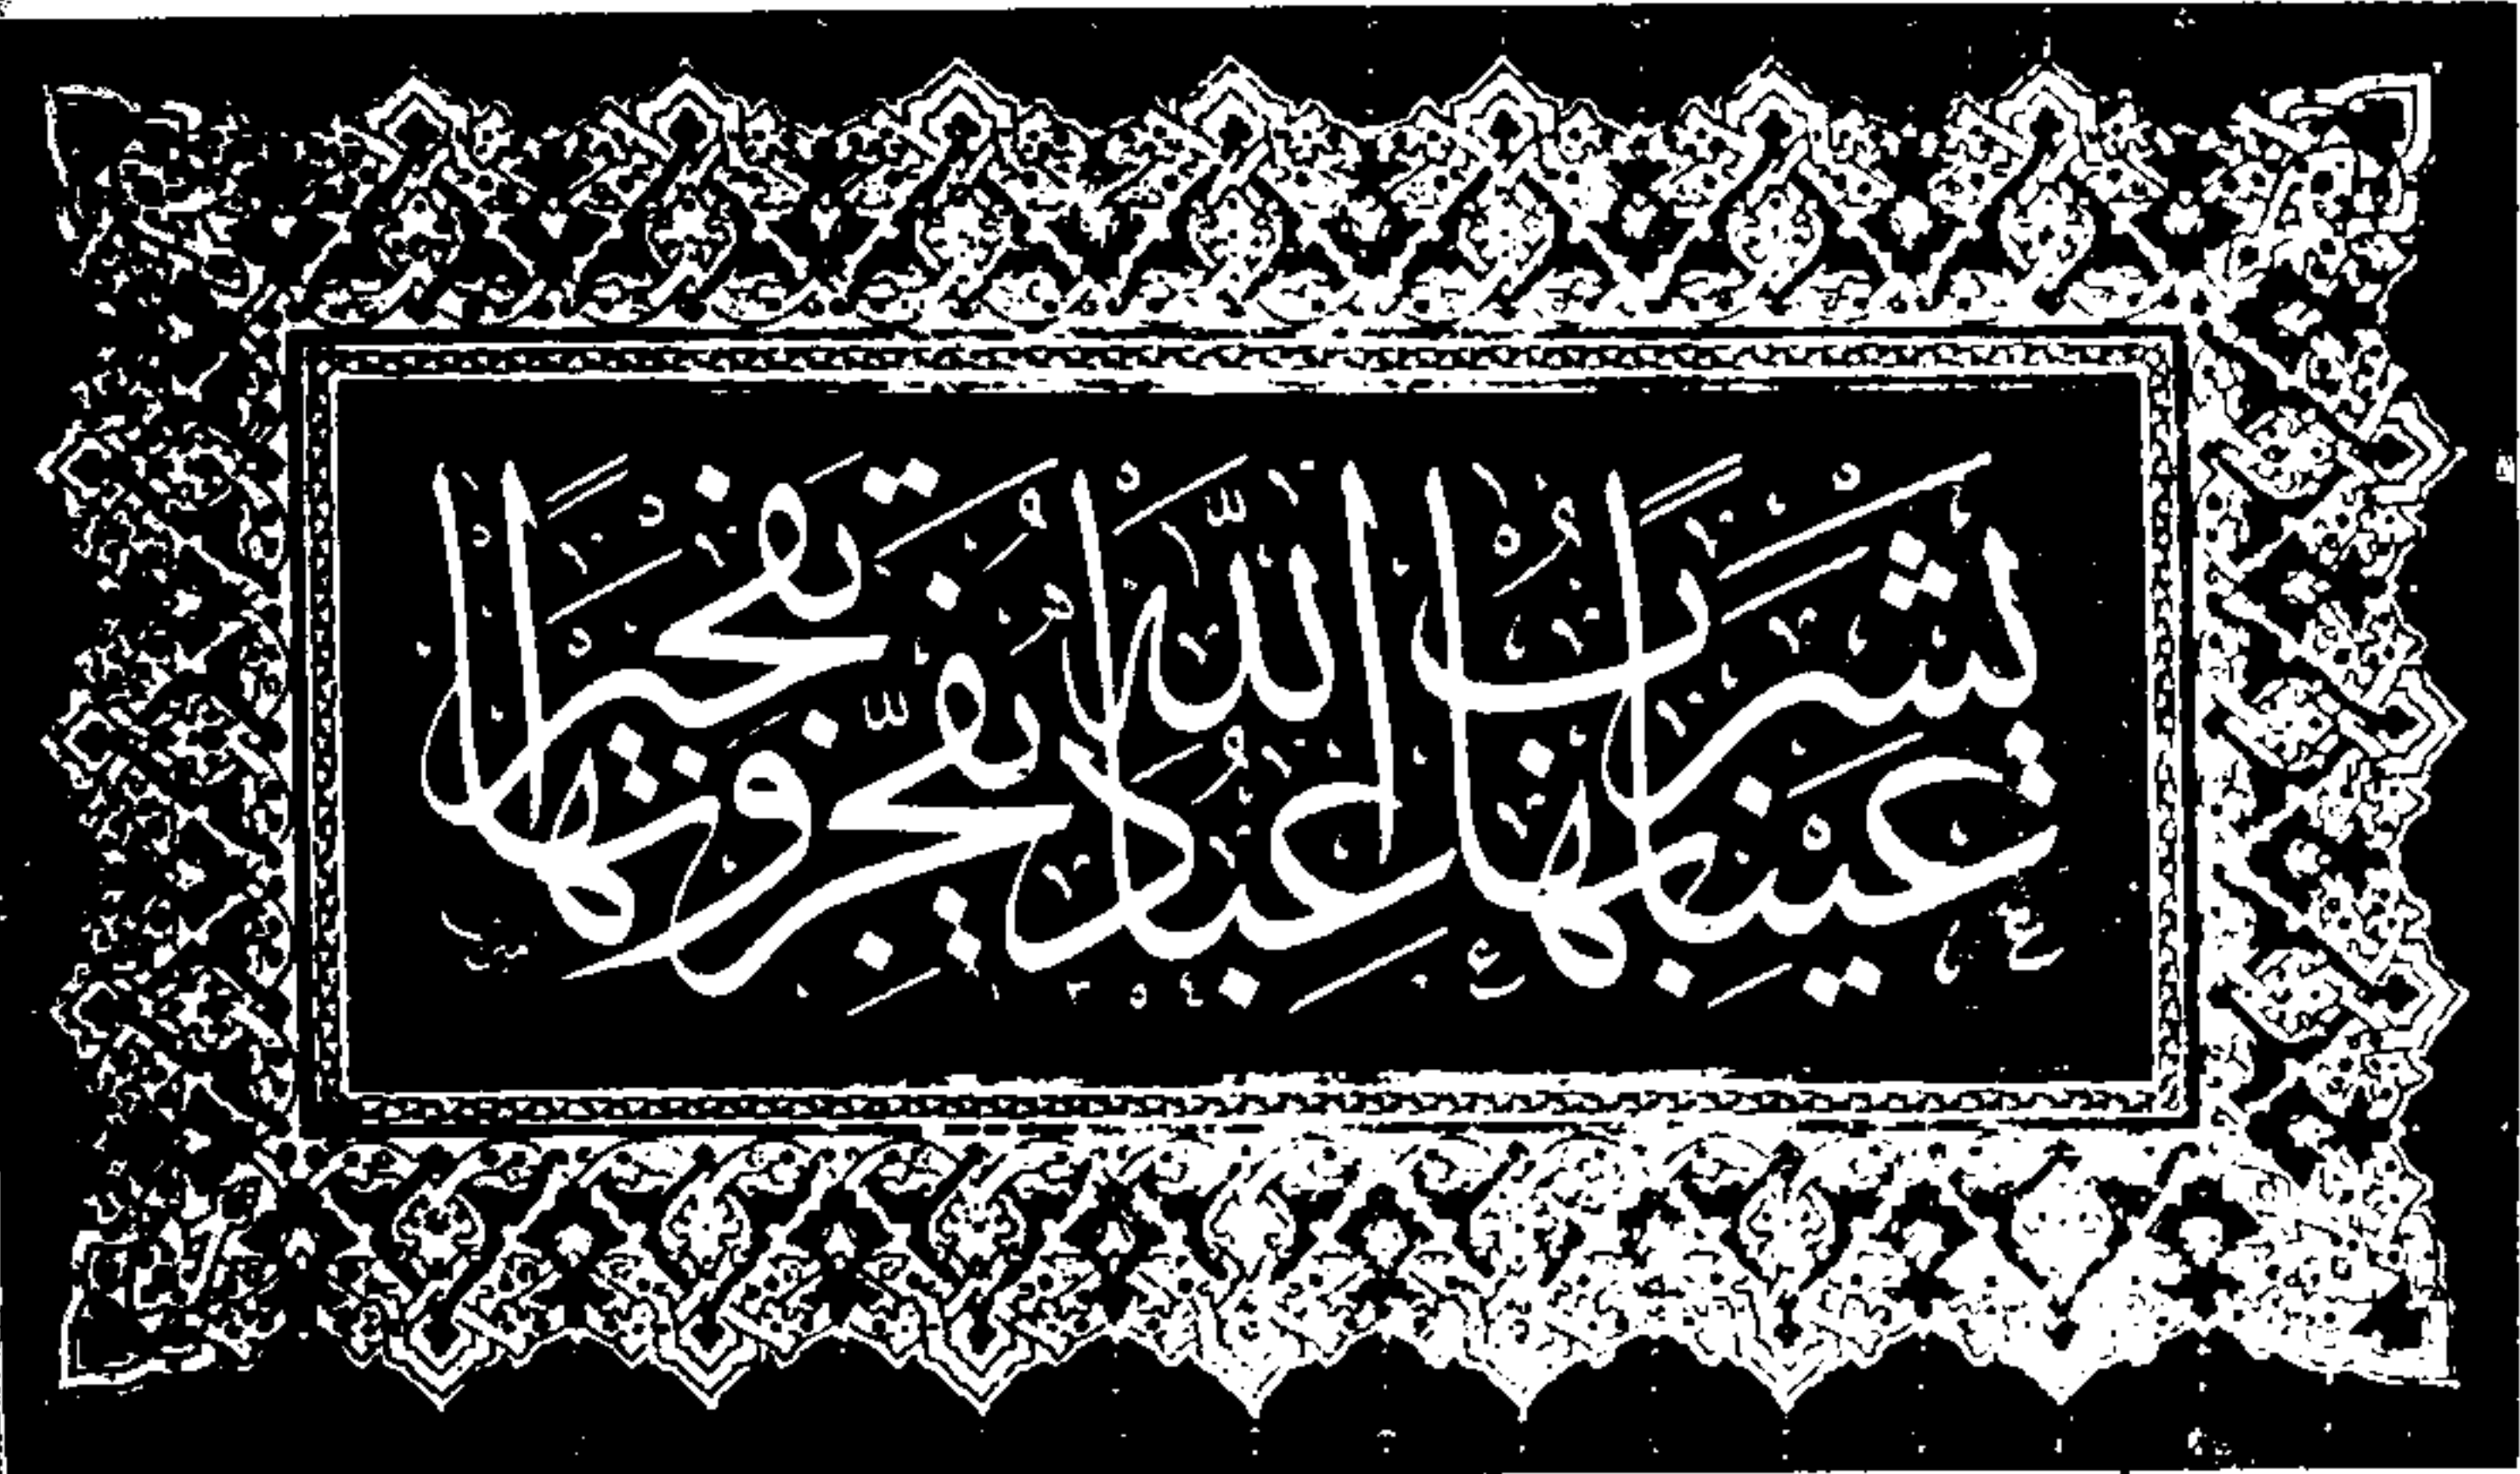 عَيْنًا يَشْرَبُ بِهَا عِبَادُ اللَّهِ يُفَجِّرُونَهَا تَفْجِيرًا
١٣٥٤